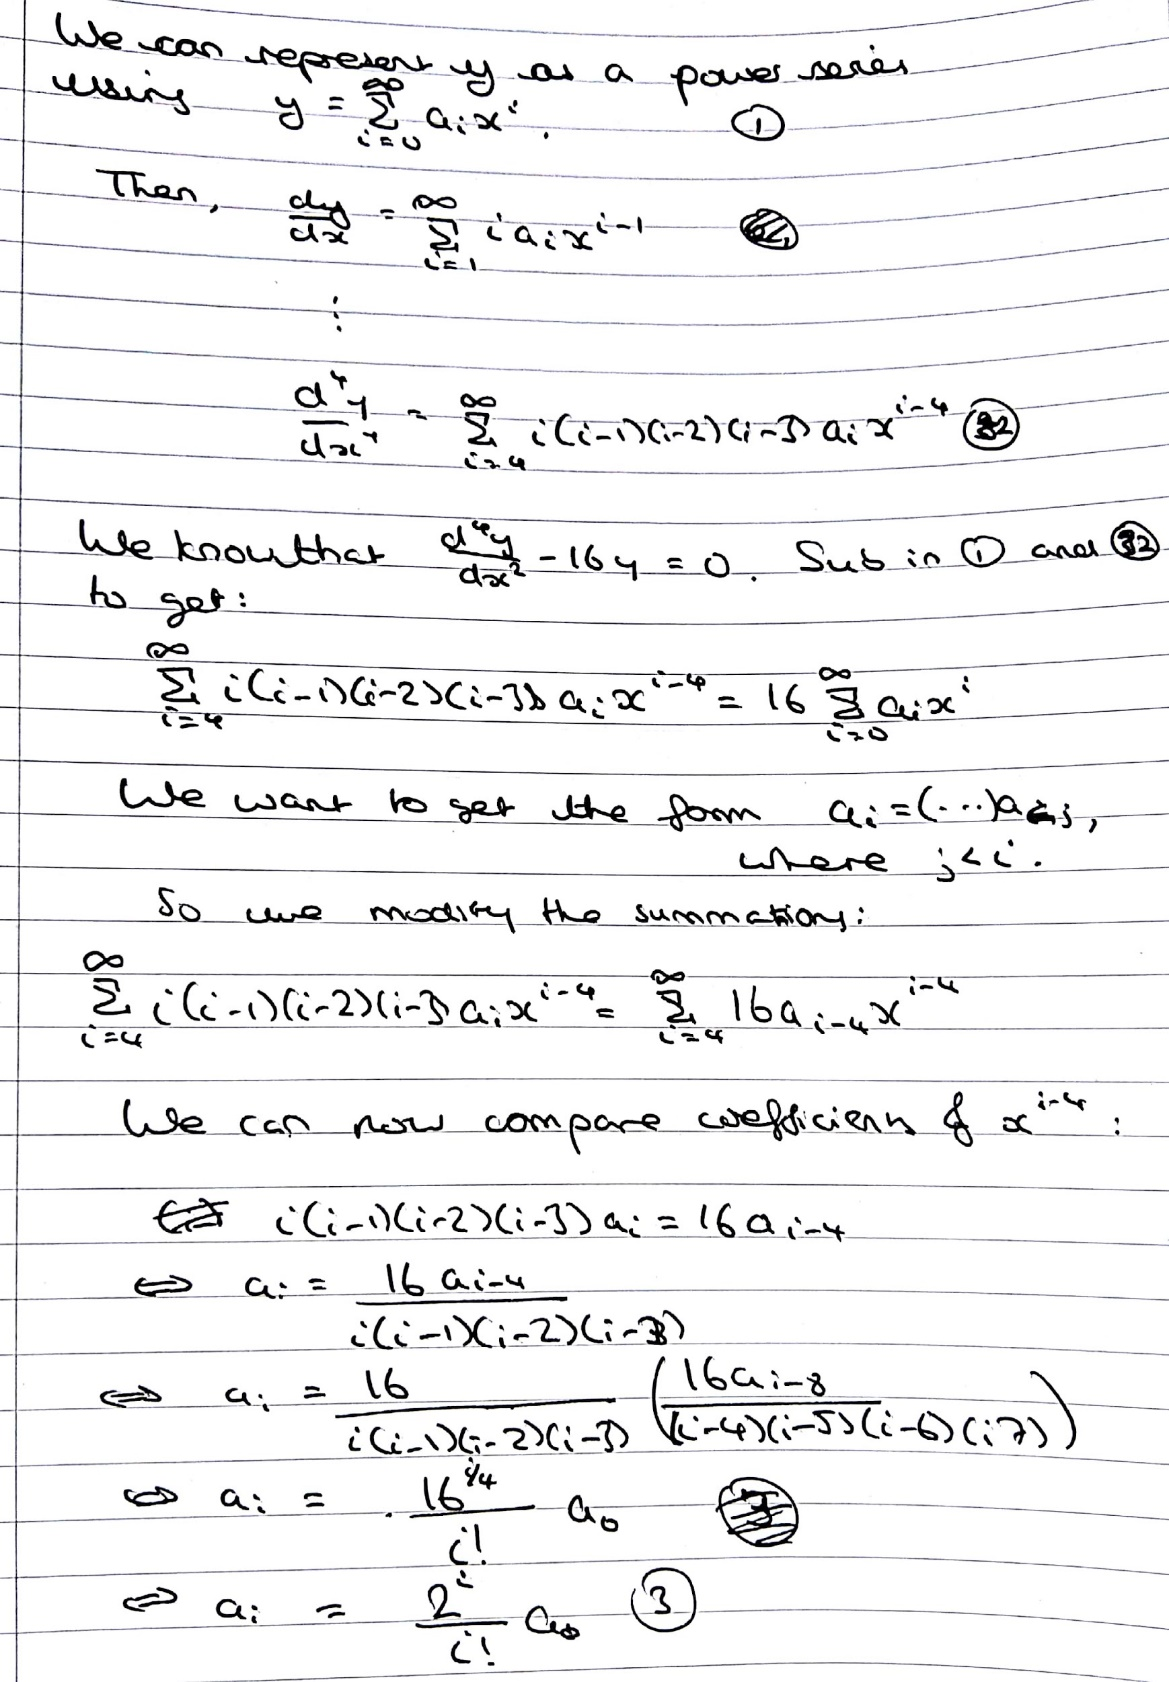 We can represent y as a power series
using y = ∑_{i=0}^{∞} a_i x^i. ①
Then, dy/dx = ∑_{i=1}^{∞} i a_i x^{i-1}
⋮
d⁴y/dx⁴ = ∑_{i=4}^{∞} i(i-1)(i-2)(i-3) a_i x^{i-4} ②
We know that d⁴y/dx² - 16y = 0. Sub in ① and ②
to get:
∑_{i=4}^{∞} i(i-1)(i-2)(i-3) a_i x^{i-4} = 16 ∑_{i=0}^{∞} a_i x^i
We want to get the form a_i = (...)a_j,
where j < i.
So we modify the summations:
∑_{i=4}^{∞} i(i-1)(i-2)(i-3) a_i x^{i-4} = ∑_{i=4}^{∞} 16 a_{i-4} x^{i-4}
We can now compare coefficients of x^{i-4}:
i(i-1)(i-2)(i-3) a_i = 16 a_{i-4}
⇔ a_i = 16 a_{i-4} / i(i-1)(i-2)(i-3)
⇔ a_i = 16 / i(i-1)(i-2)(i-3) (16 a_{i-8} / (i-4)(i-5)(i-6)(i7))
⇔ a_i = 16^{i/4} / i! a_0
⇔ a_i = 2^i / i! a_0 ③